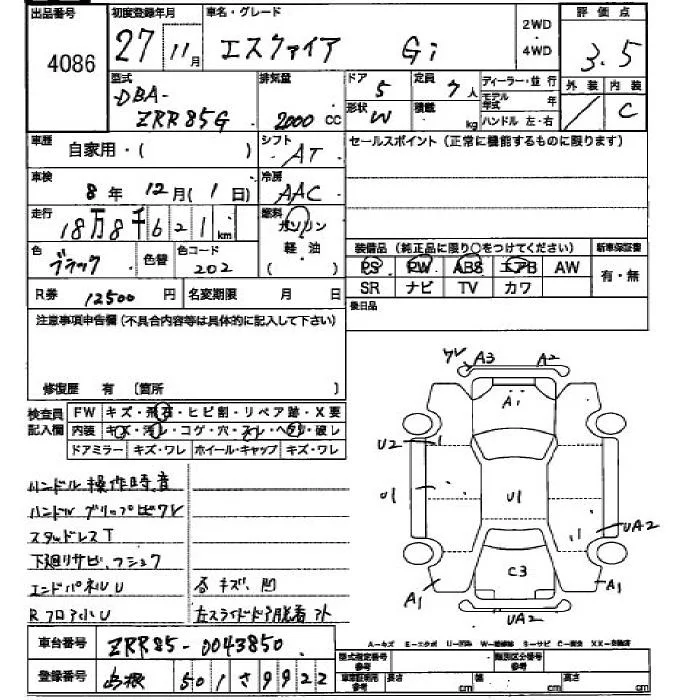 出品番号 4086
初度登録年月 27 11月
車名・グレード エスクァイア Gi
2WD ・ 4WD
評価点 3.5
外装 / 内装 C
型式 -DBA- ZRR85G
排気量 2000 CC
ドア 5
定員 7人
ディーラー・並行
形状 W
積載 kg
モデル年式 年
ハンドル 左・右
車歴 自家用・( )
シフト AT
セールスポイント (正常に機能するものに限ります)
車検 8年 12月 (1日)
冷房 AAC
走行 18万8千621km
燃料 ガソリン 軽油 ( )
色 ブラック
色替
色コード 202
装備品 (純正品に限り○をつけてください)
新車保証書
PS PW ABS エアB AW
有・無
SR ナビ TV カワ
R券 12500円
名変期限 月 日
後日品
注意事項申告欄 (不具合内容等は具体的に記入して下さい)
修復歴 有 〔箇所 〕
検査員記入欄
FW キズ・飛石・ヒビ割・リペア跡・X要
内装 キズ・汚レ・コゲ・穴・スレ・ヘタリ・破レ
ドアミラー キズ・ワレ ホイール・キャップ キズ・ワレ
ハンドル操作時音
ハンドルグリップヒビワレ
スタッドレスT
下廻りサビ、フショク
エンドパネルU 各キズ、凹
Rフロア小U 左スライドドア脱着 外
ワレ A3 A2
A1
U2
U1
U1
UA2
C3
A1
A1
UA2
車台番号 ZRR85-0043850
登録番号 島根 501 さ 9922
A-キズ E-エクボ U-凹 W-補修跡 S-サビ C-腐食 XX-交換済
型式指定番号 参考
類別区分番号 参考
車庫証明用 参考 長さ cm 幅 cm 高さ cm